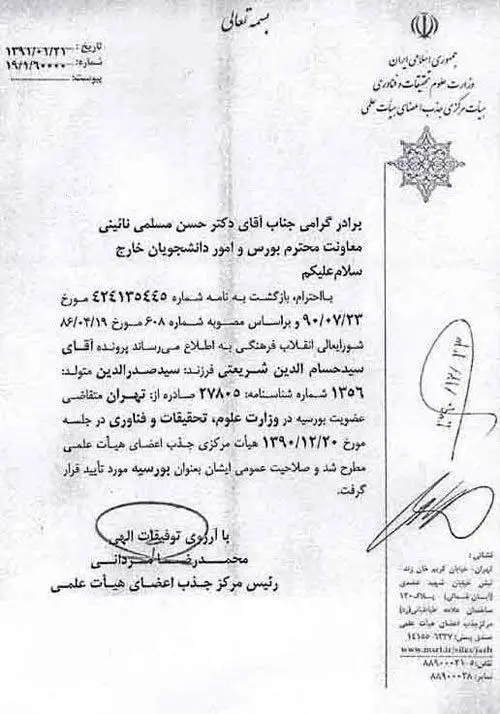 بسمه تعالی
جمهوری اسلامی ایران
وزارت علوم تحقیقات و فناوری
هیأت مرکزی جذب اعضای هیأت علمی
تاریخ: ۱۳۹۱/۰۶/۲۱
شماره: ۱۹/۱/۶۰۰۰۰
پیوست:
برادر گرامی جناب آقای دکتر حسن مسلمی نائینی
معاونت محترم بورس و امور دانشجویان خارج
سلام‌علیکم
بااحترام، بازگشت به نامه شماره ۴۲۴۱۳۵۴۴۵ مورخ
۹۰/۰۷/۲۳ و براساس مصوبه شماره ۶۰۸ مورخ ۸۶/۰۴/۱۹
شورایعالی انقلاب فرهنگی به اطلاع می‌رساند پرونده آقای
سیدحسام الدین شریعتی فرزند: سیدصدرالدین متولد:
۱۳۵۶ شماره شناسنامه: ۲۷۸۰۵ صادره از: تهران متقاضی
عضویت بورسیه در وزارت علوم، تحقیقات و فناوری در جلسه
مورخ ۱۳۹۰/۱۲/۲۰ هیأت مرکزی جذب اعضای هیأت علمی
مطرح شد و صلاحیت عمومی ایشان بعنوان بورسیه مورد تأیید قرار
گرفت.
با آرزوی توفیقات الهی
محمدرضا مردانی
رئیس مرکز جذب اعضای هیأت علمی
نشانی:
تهران- خیابان کریم خان زند-
نبش خیابان شهید عضدی
(آبان شمالی) - پلاک ۱۳۰
ساختمان علامه طباطبائی(ره)
مرکز جذب اعضای هیأت علمی
صندوق پستی: ۶۳۳۷-۱۴۱۵۵
تلفن: ۵-۸۸۹۰۰۰۲۱
نمابر: ۸۸۹۰۰۰۲۸